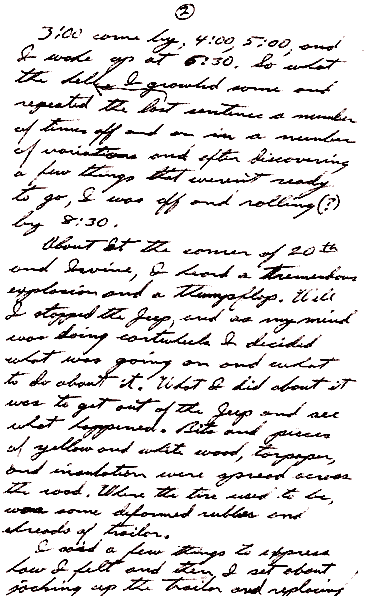 2
3:00 come by, 4:00, 5:00, and
I woke up at 6:30. So what
the hell, I growled some and
repeated the last sentence a number
of times off and on in a number
of variations and after discovering
a few things that weren't ready
to go, I was off and rolling (?)
by 8:30.
About at the corner of 20th
and Irvine, I heard a tremendous
explosion and a thumpflop. Well
I stopped the Jeep, and as my mind
was doing cartwheels I decided
what was going on and what
to do about it. What I did about it
was to get out of the Jeep and see
what happened. Bits and pieces
of yellow and white wood, tarpaper,
and insulation were spread across
the road. Where the tire used to be,
was some deformed rubber and
shreds of trailor.
I said a few things to express
how I felt and then I set about
jacking up the trailor and replacing